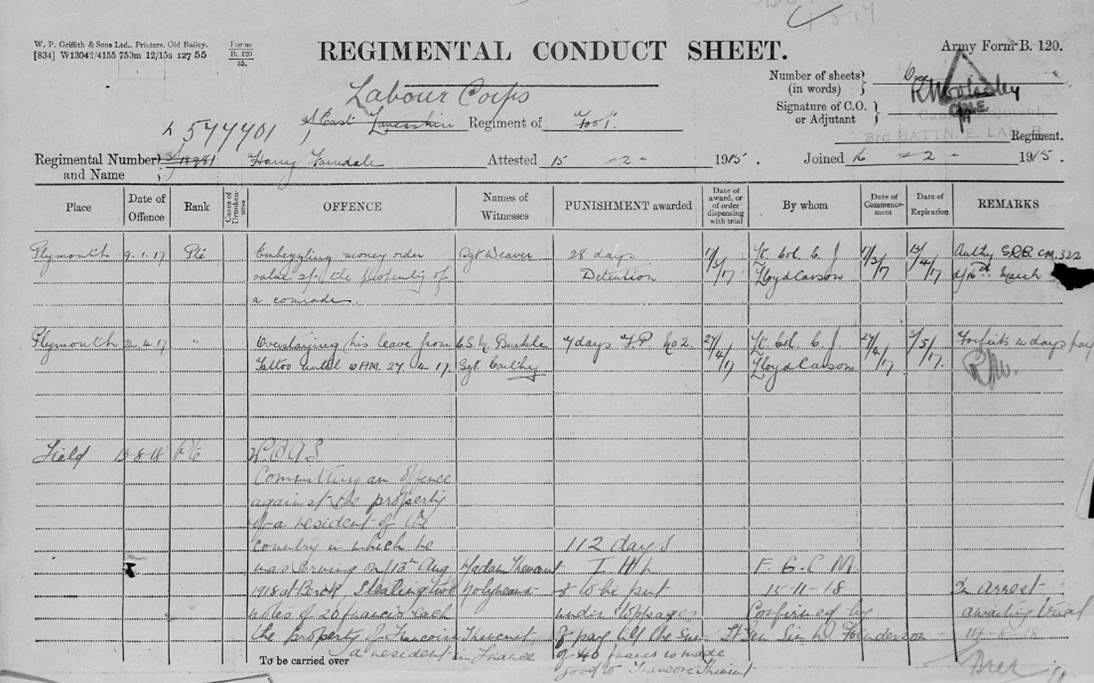 W. P. Griffith & Sons Ltd., Printers, Old Bailey.
[834] W13042/4155 750m 12/15s 127 55
Forms
B. 120
35.
REGIMENTAL CONDUCT SHEET.
Army Form B. 120.
Number of sheets (in words) } One
Signature of C.O. or Adjutant }
Labour Corps
3rd BATTN. E. LAN. R.
544401 East Lancashire Regiment of Foot
Regiment.
Regimental Number and Name Harry Farndale Attested 15 - 2 - 1915. Joined 16 - 2 - 1915.
Place Date of Offence Rank Cases of Drunkenness OFFENCE Names of Witnesses PUNISHMENT awarded Date of award, or of order dispensing with trial By whom Date of Commencement Date of Expiration REMARKS
Plymouth 9.1.17 Pte Embezzling money order Sgt Weaver 28 days 17/3/17 Lt. Col. C. J. 17/3/17 13/4/17 Authy S.R.B. CM. 322
value the property of Detention Lloyd Carson d/ March
a comrade.
Plymouth 4.17 " Overstaying his leave from C.S.M. Buckler 7 days F.P. No 2. 27/4/17 Lt. Col. C. J. 27/4/17 3/5/17. Forfeits 4 days pay
Tattoo until 6 AM. 27. 4. 17. Sgt. Lloyd Carson
Field 13-8-18 Pte W O A S
Committing an offence
against the property
of a resident of the
country in which he 112 days
was serving on 13th Aug Madam Thevenet I H L F. G. C. M.
1918 at Berck, Stealing two & to be put 15-11-18 arrest
notes of 20 francs each under stoppages Confirmed by awaiting trial
the property of Francoise Thevenet of pay till the sum Lt Gen Sir D. Henderson 14-8-18
a resident in France of 40 francs is made
To be carried over
good to Thevenet